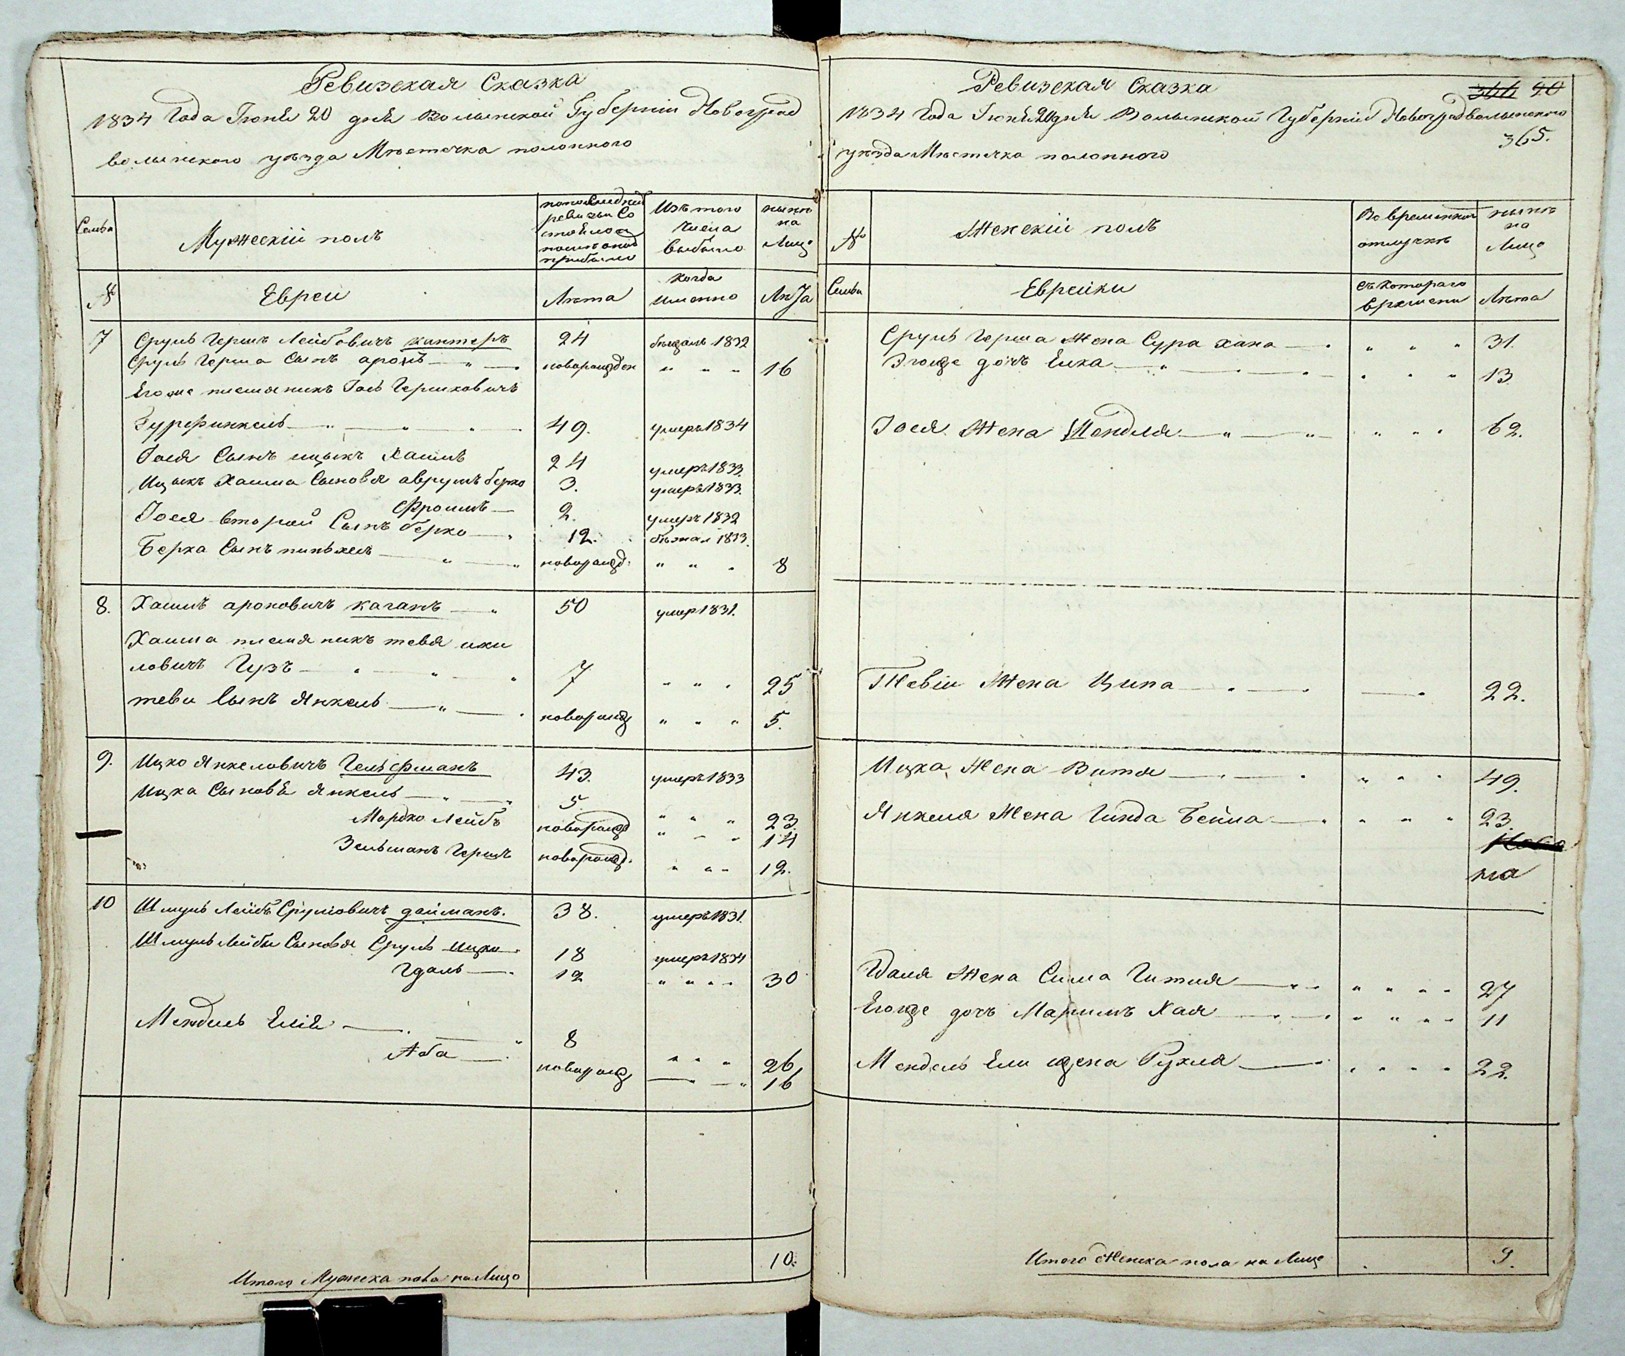 Ревизская Сказка
1834 Года Іюня 20 дня Волынской Губерніи Новоград
волынского уезда Местечка полонного
Семьи
Мужескій полъ
по последней
ревизіи Со
стояло и
после оной
прибыло
Изъ того
числа
выбыло
ныне
на
Лицо
№
Евреи
Лета
Когда
именно
Лета
7 Сруль Гершъ Лейбовичъ кантеръ 24 1832
Сруль Герша Сынъ аронъ новорожден 16
Его же племяникъ Іось Гершковичъ
Гурфинкель 49. умеръ 1834
Іося Сынъ ицыкъ Хаимъ 24 умеръ 1833
Ицыкъ Хаима Сыновя аврумъ берко 3. умеръ 1833.
Фроимъ 2. умеръ 1832
Іося второй Сынъ берко 12. бежал 1833.
Берка Сынъ пинхесъ новорожд. 8
8. Хаимъ ароновичъ каганъ 50 умер 1831.
Хаима племяникъ тевя ихи
ловичъ Гузъ 7 25
теви Сынъ Янкель новорожд 5.
9. Ицко Янкеловичъ Гельфманъ 43. умеръ 1833
Ицка Сыновя Янкель 5
Мордко Лейбъ новорожд 23.
14
Зельманъ Гершъ новорожд. 12.
10 Шмуль Лейбъ Срулiовичъ дайманъ. 38. умеръ 1831
Шмуль Лейбы Сыновя Сруль ицко 18 умеръ 1834
Гдаль 12 30
Мендель Еліе 8 26
Аба новорожд 16
Итого Мужеска пола на Лицо 10.
Ревизская Сказка
366 90
1834 Года Іюня 20 дня Волынской Губерніи Новоградволынского
365.
уезда Местечка полонного
№
Женскій полъ
Во временной
отлучке
ныне
на
Лицо
Семьи
Еврейки
съ Котораго
времени
Лета
Сруль Герша Жена Сура хана 31.
Егожде дочъ Ента 13.
Іося Жена Мендля 62.
Тевіи Жена Ципа 22.
Ицка Жена Витя 49.
Янкеля Жена Гинда Бейла 23.
Гдаля Жена Сима Гитля 27
Егожде дочъ Маримъ Хая 11
Мендель Ели жена Рухля 22.
Итого Женска пола на Лицо 9.